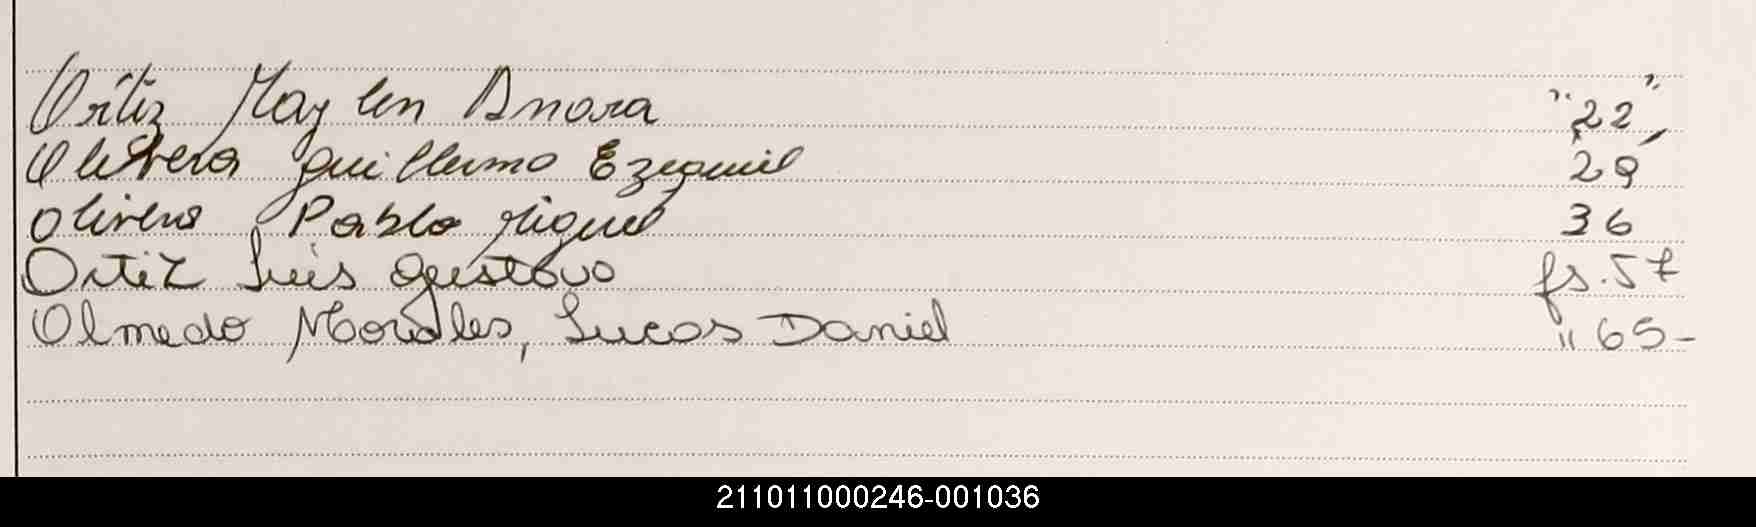 Ortiz Maylen Anora "22",
Olivera Guillermo Ezequiel 29
Olivera Pablo Miguel 36
Ortiz Luis Gustavo fs. 57
Olmedo Morales, Lucas Daniel " 65-
211011000246-001036